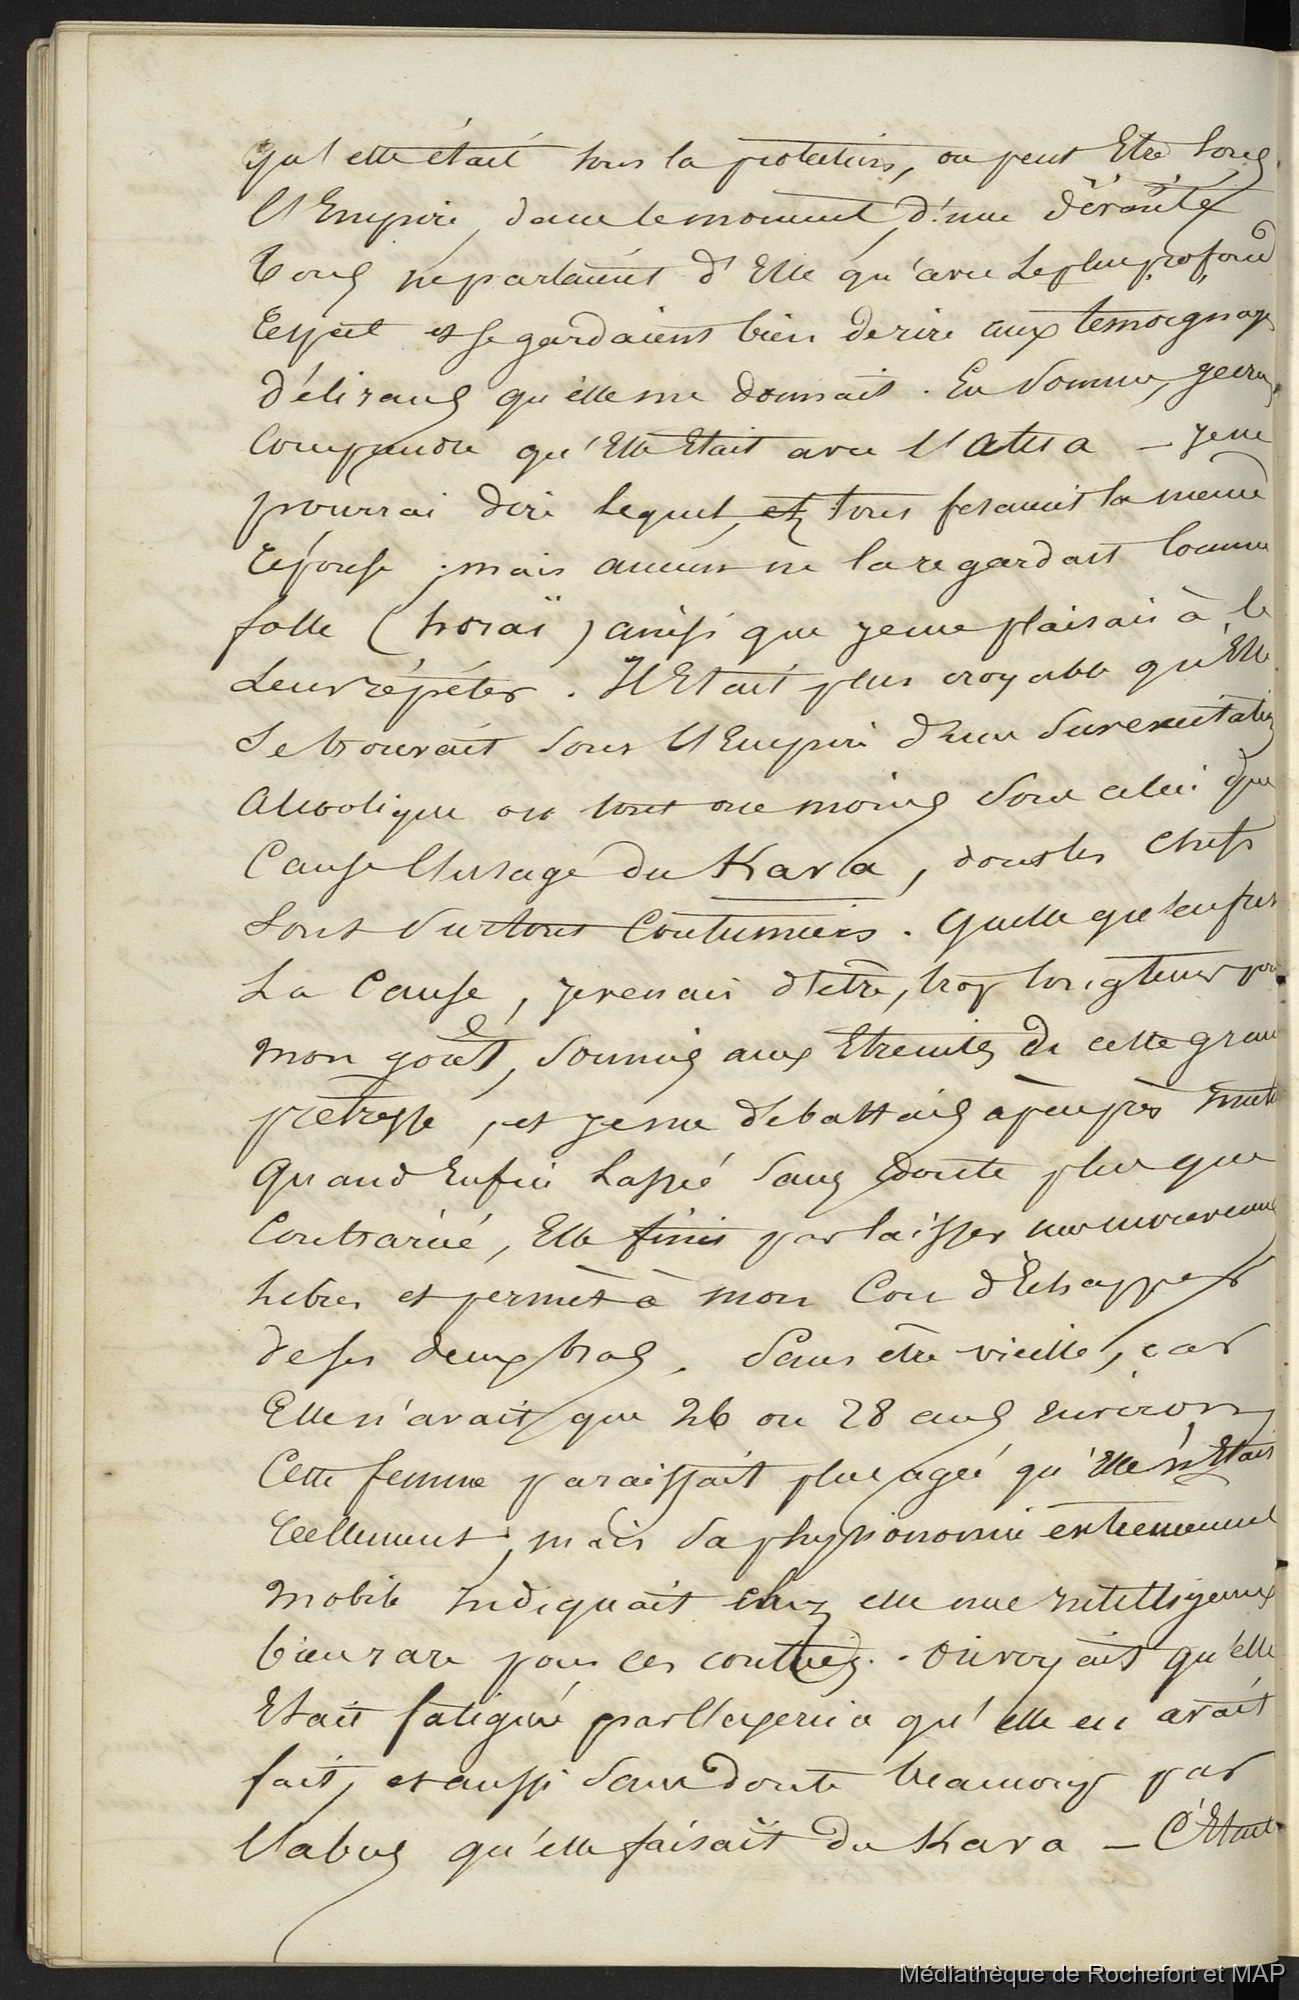 qu'elle était sous la protection, ou peut Etre sous
l'Empire, dans le moment d'une déroute
tous ne parlaient d'Elle qu'avec le plus profond
respect et se gardaient bien de rire aux temoignages
délirans qu'elle me donnait. En somme, je crus
comprendre qu'Elle Etait avec l'atua – je ne
pourrai dire lequel, et tous fesaient la meme
réponse; mais aucun ne la regardait comme
folle (horaï) ainsi que je me plaisais à le
leur répéter. Il Etait plus croyable qu'Elle
se trouvait sous l'Empire d'une surexcitation
alcoolique ou tout au moins sous celui que
cause l'usage du Kava, dont les chefs
sont surtout coutumiers. Quelle que en fut
la cause, je venais d'être, trop longtems pour
mon goût, soumis aux Etreintes de cette grande
prêtresse, et je me debattais à peu près
quand enfin lassée sans doute plus que
contrariée, Elle finit par laisser mes mouvemens
libres et permit à mon cou d'Echapper
de ses deux bras. Sans être vieille, car
Elle n'avait que 26 ou 28 ans environ
cette femme paraissait plus agée qu'Elle n'Etait
réellement; mais sa physionomie extremement
mobile indiquait chez elle une intelligence
bien rare pour ces contrées. On voyait qu'elle
Etait fatiguée par l'usage qu'elle en avait
fait, et aussi sans doute beaucoup par
l'abus qu'elle faisait du Kava – C'Etait
Médiathèque de Rochefort et MAP